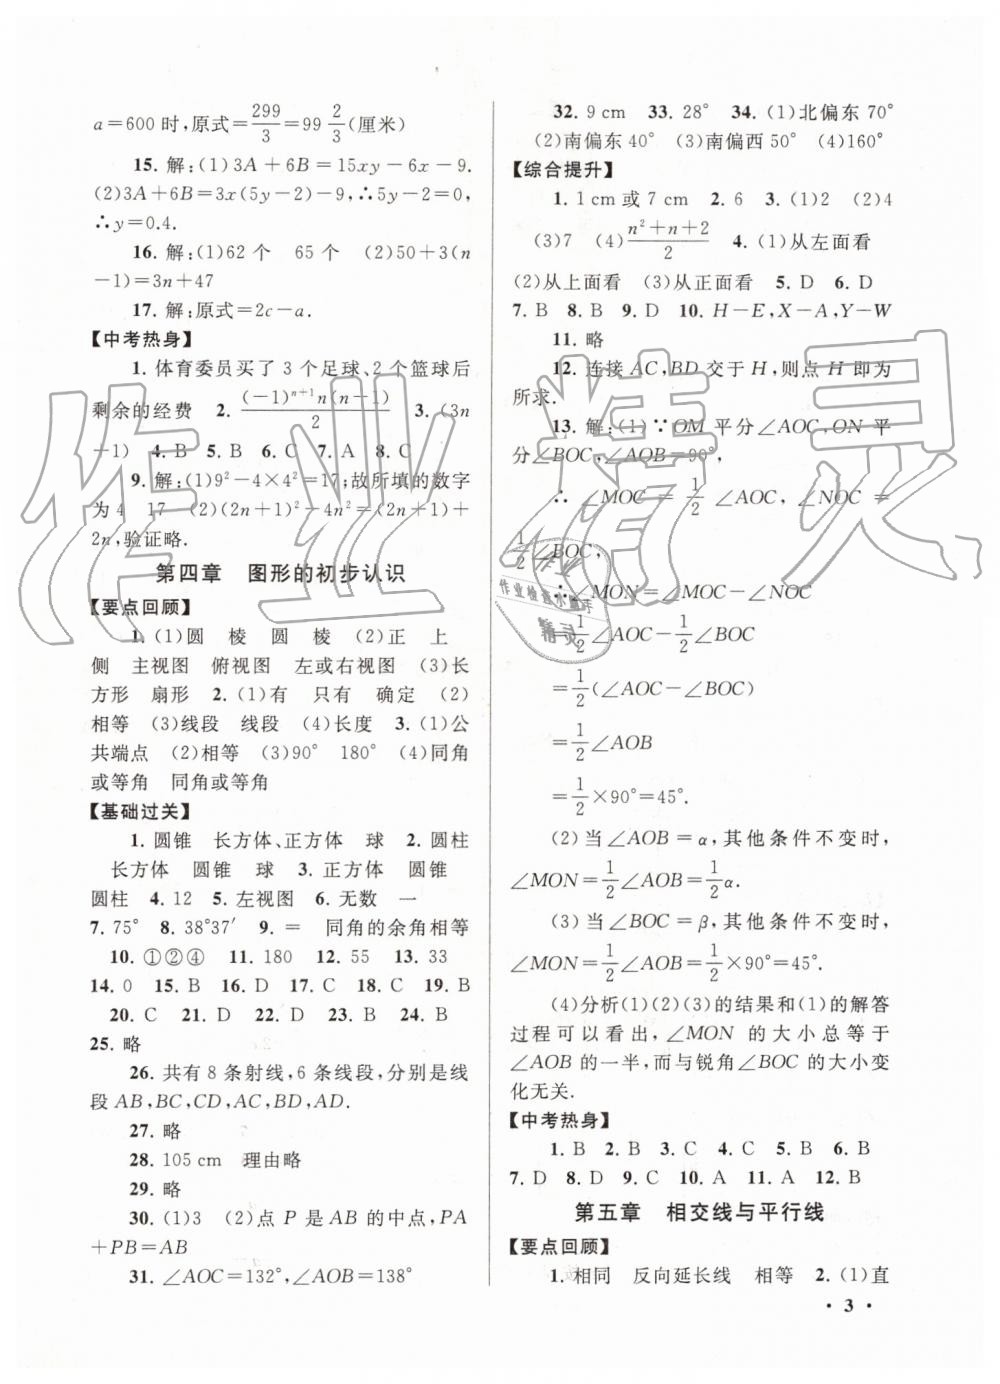 a=600时,原式=299/3=99 2/3(厘米)
15. 解:(1)3A+6B=15xy-6x-9.
(2)3A+6B=3x(5y-2)-9,∴5y-2=0,
∴y=0.4.
16. 解:(1)62个 65个 (2)50+3(n
-1)=3n+47
17. 解:原式=2c-a.
【中考热身】
1. 体育委员买了3个足球、2个篮球后
剩余的经费 2. (-1)^{n+1}n(n-1)/2 3. (3n
+1) 4. B 5. B 6. C 7. A 8. C
9. 解:(1)9²-4×4²=17;故所填的数字
为4 17 (2)(2n+1)²-4n²=(2n+1)+
2n,验证略.
第四章 图形的初步认识
【要点回顾】
1. (1)圆 棱 圆 棱 (2)正 上
侧 主视图 俯视图 左或右视图 (3)长
方形 扇形 2. (1)有 只有 确定 (2)
相等 (3)线段 线段 (4)长度 3. (1)公
共端点 (2)相等 (3)90° 180° (4)同角
或等角 同角或等角
【基础过关】
1. 圆锥 长方体、正方体 球 2. 圆柱
长方体 圆锥 球 3. 正方体 圆锥
圆柱 4. 12 5. 左视图 6. 无数 一
7. 75° 8. 38°37′ 9. = 同角的余角相等
10. ①②④ 11. 180 12. 55 13. 33
14. 0 15. B 16. D 17. C 18. C 19. B
20. C 21. D 22. D 23. C 24. B
25. 略
26. 共有8条射线,6条线段,分别是线
段AB,BC,CD,AC,BD,AD.
27. 略
28. 105 cm 理由略
29. 略
30. (1)3 (2)点P是AB的中点,PA
+PB=AB
31. ∠AOC=132°,∠AOB=138°
32. 9 cm 33. 28° 34. (1)北偏东70°
(2)南偏东40° (3)南偏西50° (4)160°
【综合提升】
1. 1 cm或7 cm 2. 6 3. (1)2 (2)4
(3)7 (4)(n²+n+2)/2 4. (1)从左面看
(2)从上面看 (3)从正面看 5. D 6. D
7. B 8. B 9. D 10. H-E,X-A,Y-W
11. 略
12. 连接AC,BD交于H,则点H即为
所求.
13. 解:(1)∵OM平分∠AOC,ON平
分∠BOC,∠AOB=90°,
∴∠MOC=1/2∠AOC,∠NOC=
1/2∠BOC,
∴∠MON=∠MOC-∠NOC
=1/2∠AOC-1/2∠BOC
=1/2(∠AOC-∠BOC)
=1/2∠AOB
=1/2×90°=45°.
(2)当∠AOB=α,其他条件不变时,
∠MON=1/2∠AOB=1/2α.
(3)当∠BOC=β,其他条件不变时,
∠MON=1/2∠AOB=1/2×90°=45°.
(4)分析(1)(2)(3)的结果和(1)的解答
过程可以看出,∠MON的大小总等于
∠AOB的一半,而与锐角∠BOC的大小变
化无关.
【中考热身】
1. B 2. B 3. C 4. C 5. B 6. B
7. D 8. D 9. C 10. A 11. A 12. B
第五章 相交线与平行线
【要点回顾】
1. 相同 反向延长线 相等 2. (1)直
· 3 ·
作业精灵